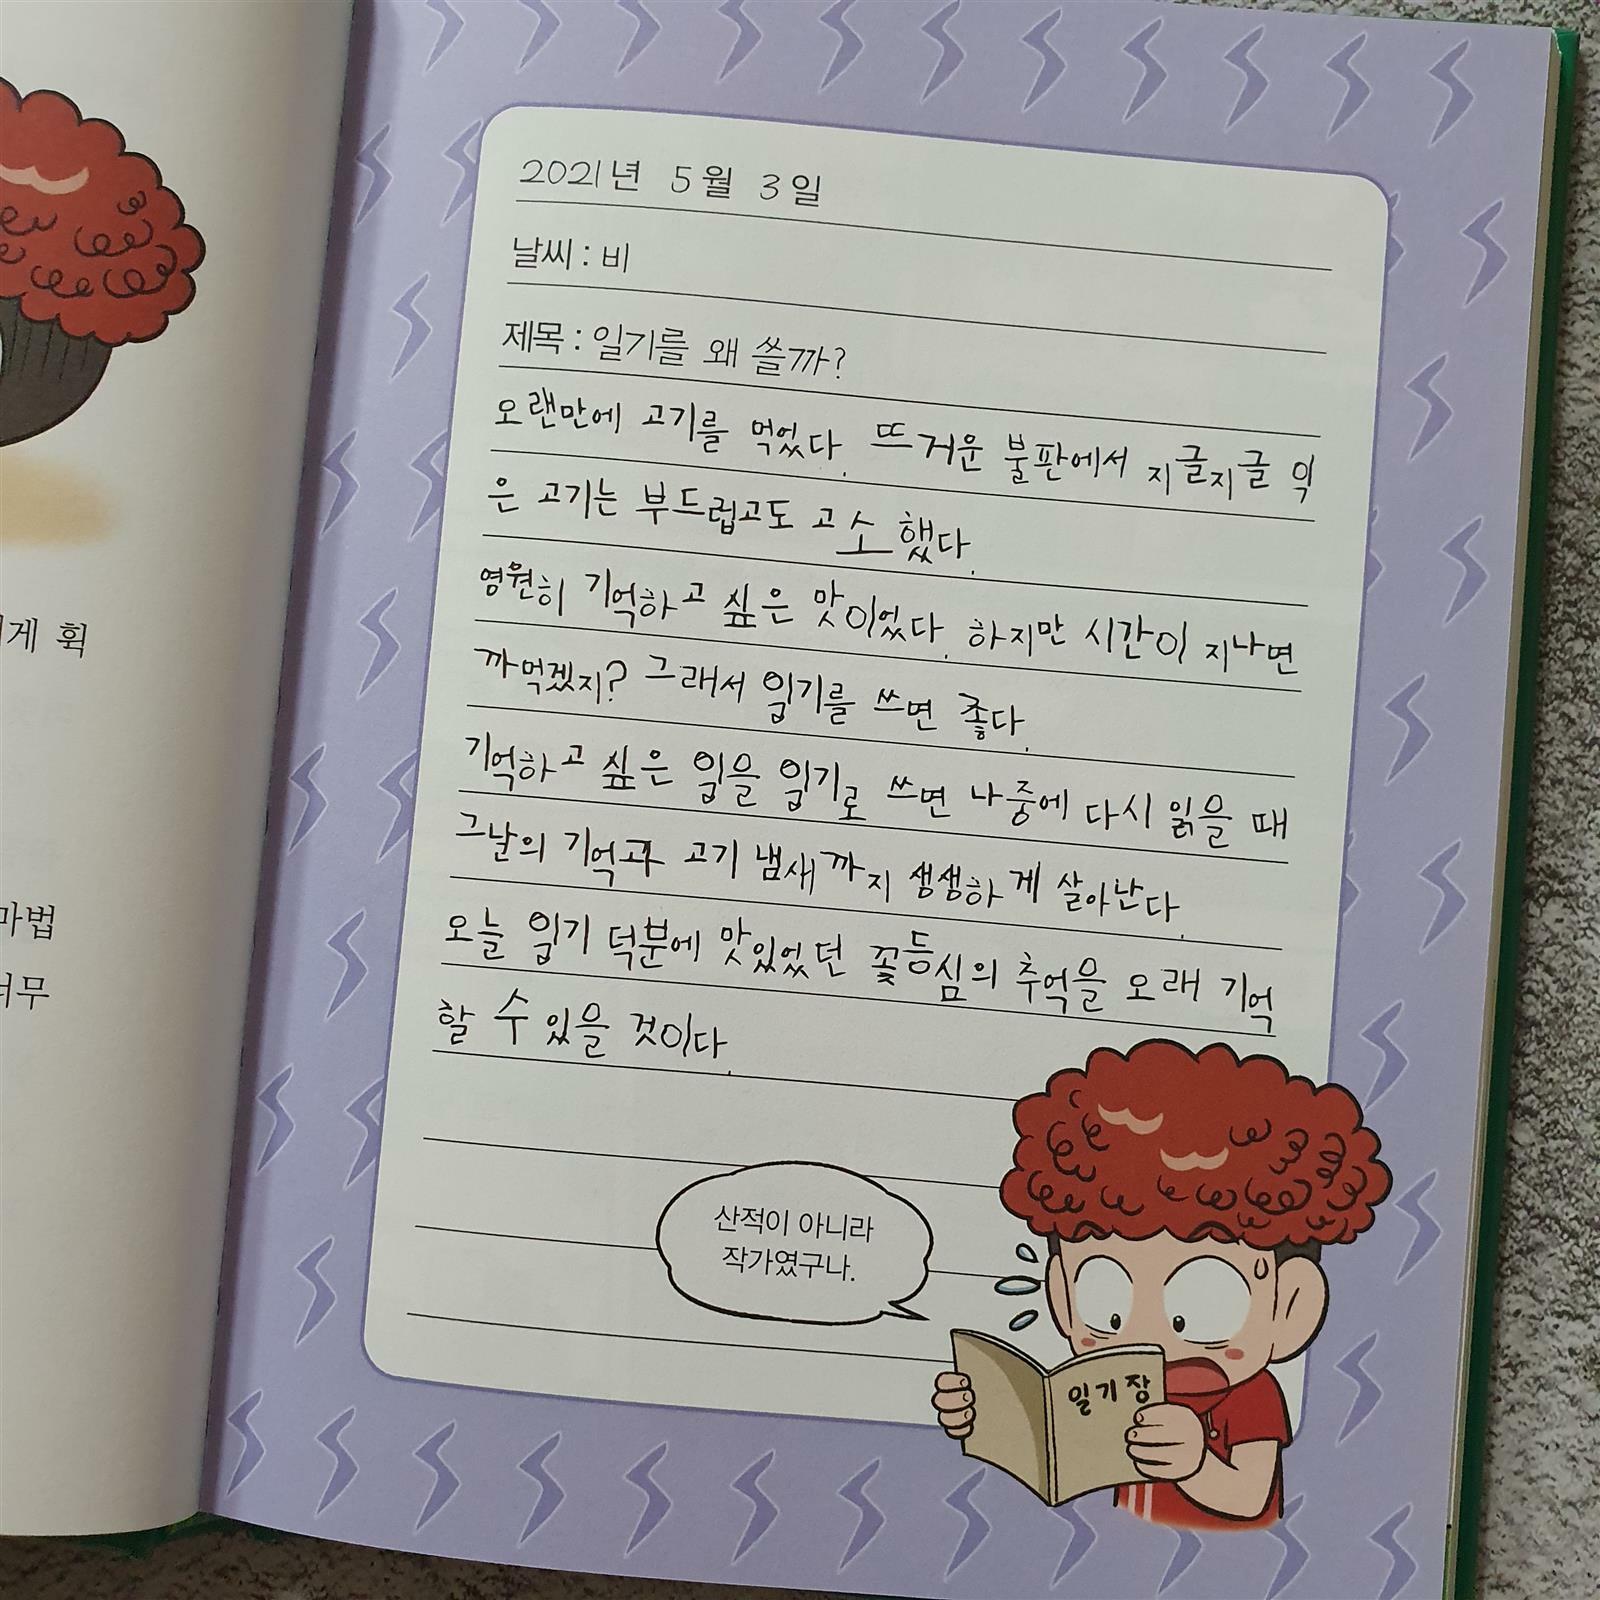 2021년 5월 3일
날씨 : 비
제목 : 일기를 왜 쓸까?
오랜만에 고기를 먹었다. 뜨거운 불판에서 지글지글 익
은 고기는 부드럽고도 고소했다.
영원히 기억하고 싶은 맛이었다. 하지만 시간이 지나면
까먹겠지? 그래서 일기를 쓰면 좋다.
기억하고 싶은 일을 일기로 쓰면 나중에 다시 읽을 때
그날의 기억과 고기 냄새까지 생생하게 살아난다.
오늘 일기 덕분에 맛있었던 꽃등심의 추억을 오래 기억
할 수 있을 것이다.
산적이 아니라
작가였구나.
일기장
게 휙
마법
너무